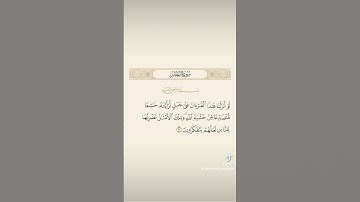 سورة الحشر
لَوْ أَنزَلْنَا هَٰذَا الْقُرْآنَ عَلَىٰ جَبَلٍ لَّرَأَيْتَهُ خَاشِعًا
مُّتَصَدِّعًا مِّنْ خَشْيَةِ اللَّهِ وَتِلْكَ الْأَمْثَالُ نَضْرِبُهَا
لِلنَّاسِ لَعَلَّهُمْ يَتَفَكَّرُونَ